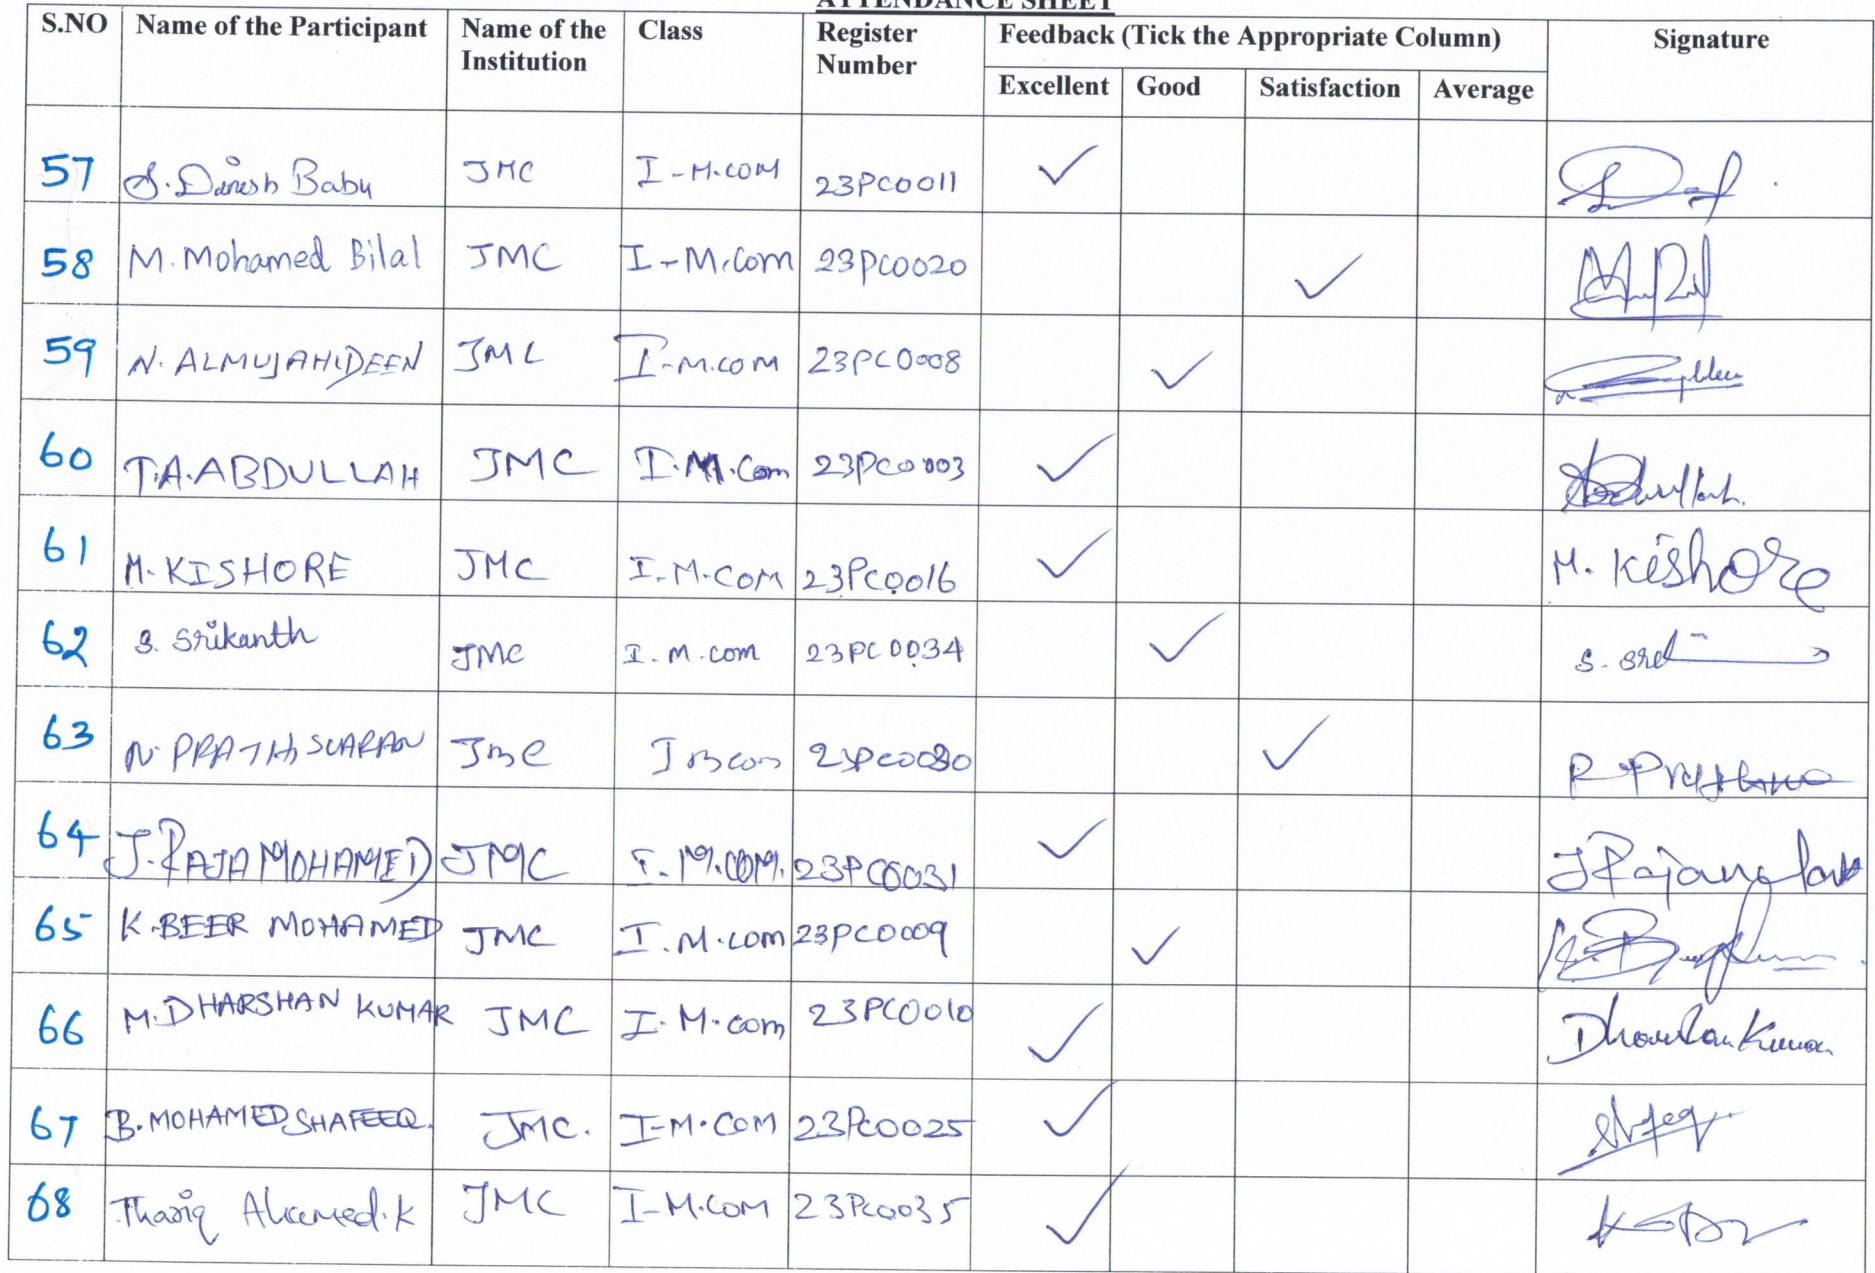 ATTENDANCE SHEET
S.NO Name of the Participant Name of the Institution Class Register Number Feedback (Tick the Appropriate Column) Signature
Excellent Good Satisfaction Average
57 S. Dinesh Babu JMC I-M.COM 23PC0011 ✓
58 M. Mohamed Bilal JMC I-M.Com 23PC0020 ✓
59 N. ALMUJAHIDEEN JMC I-M.COM 23PC0008 ✓
60 T.A. ABDULLAH JMC I.M.Com 23PC0003 ✓ Abdullah.
61 M. KISHORE JMC I.M.COM 23PC0016 ✓ M. Kishore
62 S. Srikanth JMC I.M.com 23PC0034 ✓ S. Sri
63 JMC I M com ✓
64 J. RAJA MOHAMED JMC I.M.COM. 23PC0031 ✓
65 K. BEER MOHAMED JMC I.M.com 23PC0009 ✓
66 M. DHARSHAN KUMAR JMC I.M.com 23PC0010 ✓ Dharshan Kumar
67 B. MOHAMED SHAFEEQ. JMC. I-M.COM 23PC0025 ✓
68 Thariq Ahamed.K JMC I-M.COM 23PC0035 ✓